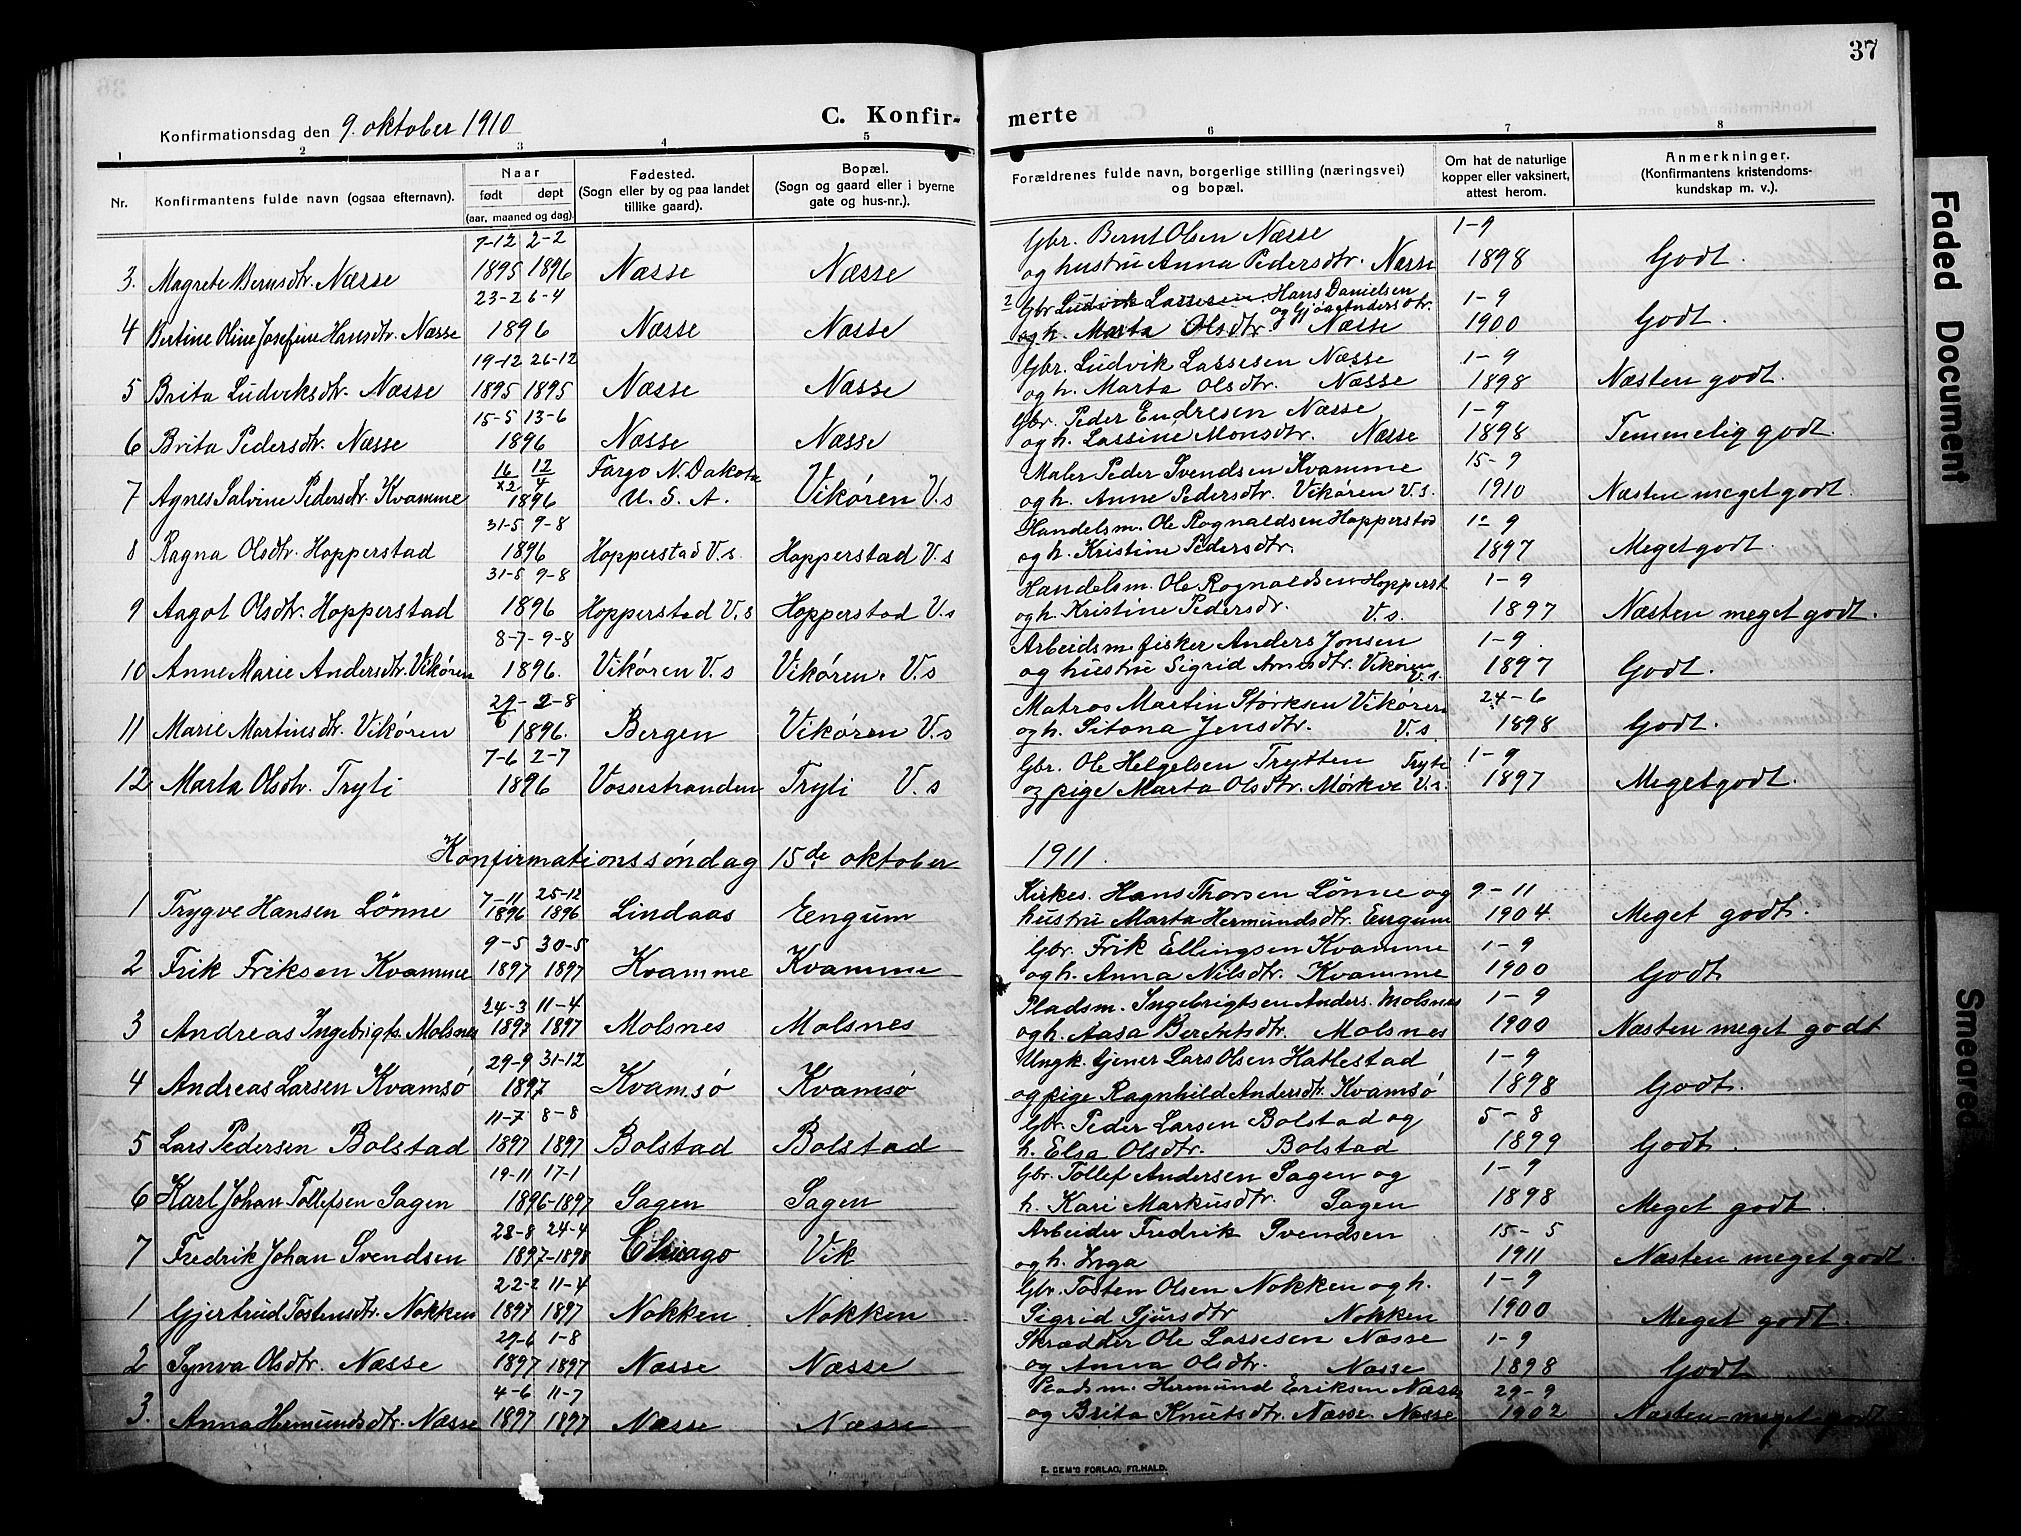 37
Konfirmationsdag den 9. oktober 1910
C. Konfir-
merte
1 2 3 4 5 6 7 8
Nr. Konfirmantens fulde navn (ogsaa efternavn). Naar født døpt (aar, maaned og dag). Fødested. (Sogn eller by og paa landet tillike gaard). Bopæl. (Sogn og gaard eller i byerne gate og hus-nr.). Forældrenes fulde navn, borgerlige stilling (næringsvei) og bopæl. Om hat de naturlige kopper eller vaksinert, attest herom. Anmerkninger. (Konfirmantens kristendoms-kundskap m. v.).
7-12 2-2 Gbr. Bernt Olsen Næsse 1-9
3. Magrete Bernsdtr. Næsse 1895 1896 Næsse Næsse og hustru Anna Pedersdtr. Næsse 1898 Godt.
23-2 6-4 2 Gbr Ludvik Lassesen Hans Danielsen og Gjøa Andersdtr. 1-9
4 Bertine Oline Josefine Hansdtr. Næsse 1896 Næsse Næsse og h. Marta Olsdtr. Næsse 1900 Godt.
19-12 26-12 Gbr. Ludvik Lassesen Næsse 1-9
5 Brita Ludviksdtr. Næsse 1895 1895 Næsse Næsse og h. Marta Olsdtr. Næsse 1898 Næsten godt.
15-5 13-6 Gbr. Peder Endresen Næsse 1-9
6 Brita Pedersdtr. Næsse 1896 Næsse Næsse og h. Lassine Monsdtr. Næsse 1898 Temmelig godt.
16/x2 12/4 Fargo N. Dakota Maler Peder Svendsen Kvamme 15-9
7 Agnes Salvine Pedersdtr. Kvamme 1896 U. S. A. Vikøren V.s og h. Anne Pedersdtr. Vikøren V.s. 1910 Næsten meget godt.
31-5 9-8 Handelsm. Ole Rognaldsen Hopperstad 1-9
8 Ragna Olsdtr. Hopperstad 1896 Hopperstad V.s. Hopperstad V.s og h. Kristine Pedersdtr. 1897 Meget godt.
31-5 9-8 Handelsm. Ole Rognaldsen Hopperst 1-9
9 Aagot Olsdtr. Hopperstad 1896 Hopperstad V.s Hopperstad V.s og h. Kristine Pedersdr. V.s. 1897 Næsten meget godt.
8-7- 9-8 Arbeidsm. fisker Anders Jonsen 1-9.
10 Anne Marie Andersdtr. Vikøren 1896. Vikøren V.s Vikøren. V.s og hustru Sigrid Arnesdtr. Vikøren V.s. 1897 Godt.
29/6 - 2-8 Matros Martin Størksen Vikøren 24-6
11 Marie Martinsdtr. Vikøren 1896. Bergen Vikøren V.s og h. Sitona Jensdtr. V.s. 1898 Godt.
7-6 2-7 Gbr. Ole Helgesen Trytten Tryti 1-9
12 Marta Olsdtr. Tryti 1896 Vossestranden Tryti V.s og pige Marta Olsdtr. Mørkve V.s. 1897 Meget godt.
Konfirmationssøndag 15de oktober 1911.
7-11 25-12 Kirkes. Hans Thorsen Lønne og 9-11
1 Trygve Hansen Lønne 1896 1896 Lindaas Engum hustru Marta Hermundsdtr. Engum 1904. Meget godt.
9-5 30-5 Gbr. Frik Ellingsen Kvamme 1-9
2 Frik Friksen Kvamme 1897 1897 Kvamme Kvamme og h. Anna Nilsdtr. Kvamme 1900 Godt
24-3 11-4 Pladsm. Ingebrigtsen Anders. Molsnes 1-9
3 Andreas Ingebrigts. Molsnes 1897 1897 Molsnes Molsnes og h. Aasa Berentsdtr. Molsnes 1900 Næsten meget godt
29-9 31-12 Ungk. tjener Lars Olsen Hatlestad 1-9
4 Andreas Larsen Kvamsø 1897 Kvamsø Kvamsø og pige Ragnhild Andersdtr. Kvamsø 1898 Godt.
11-7 8-8 Gbr. Peder Larsen Bolstad og 5-8
5 Lars Pedersen Bolstad 1897 1897 Bolstad Bolstad h. Elsa Olsdtr. Bolstad 1899 Godt.
19-11 17-1 Gbr. Tollef Andersen Sagen og 1-9
6 Karl Johan Tollefsen Sagen 1896-1897 Sagen Sagen h. Kari Markusdtr. Sagen 1898 Meget godt.
28-8 24-4 Arbeider Fredrik Svendsen 15-5
7 Fredrik Johan Svendsen 1897-1898 Chicago Vik og h. Inga 1911 Næsten meget godt.
22-2 11-4 Gbr. Tosten Olsen Nokken og h. 1-9
1 Gjertrud Tostensdtr. Nokken 1897 1897 Nokken Nokken Sigrid Sjursdtr Nokken 1900 Meget godt.
29-6 1-8 Skrædder Ole Lassesen Næsse 1-9
2 Synva Olsdtr. Næsse 1897 1897 Næsse Næsse og Anna Olsdtr. Næsse 1898 Godt
4-6 11-7 Pladsm. Hermund Eriksen Næsse 29-9
3. Anna Hermundsdtr. Næsse 1897 1897 Næsse Næsse og Brita Knutsdtr. Næsse Næsse 1902 Næsten meget godt
E. SEM'S FORLAG, FR.HALD.
Faded Document
Smeared